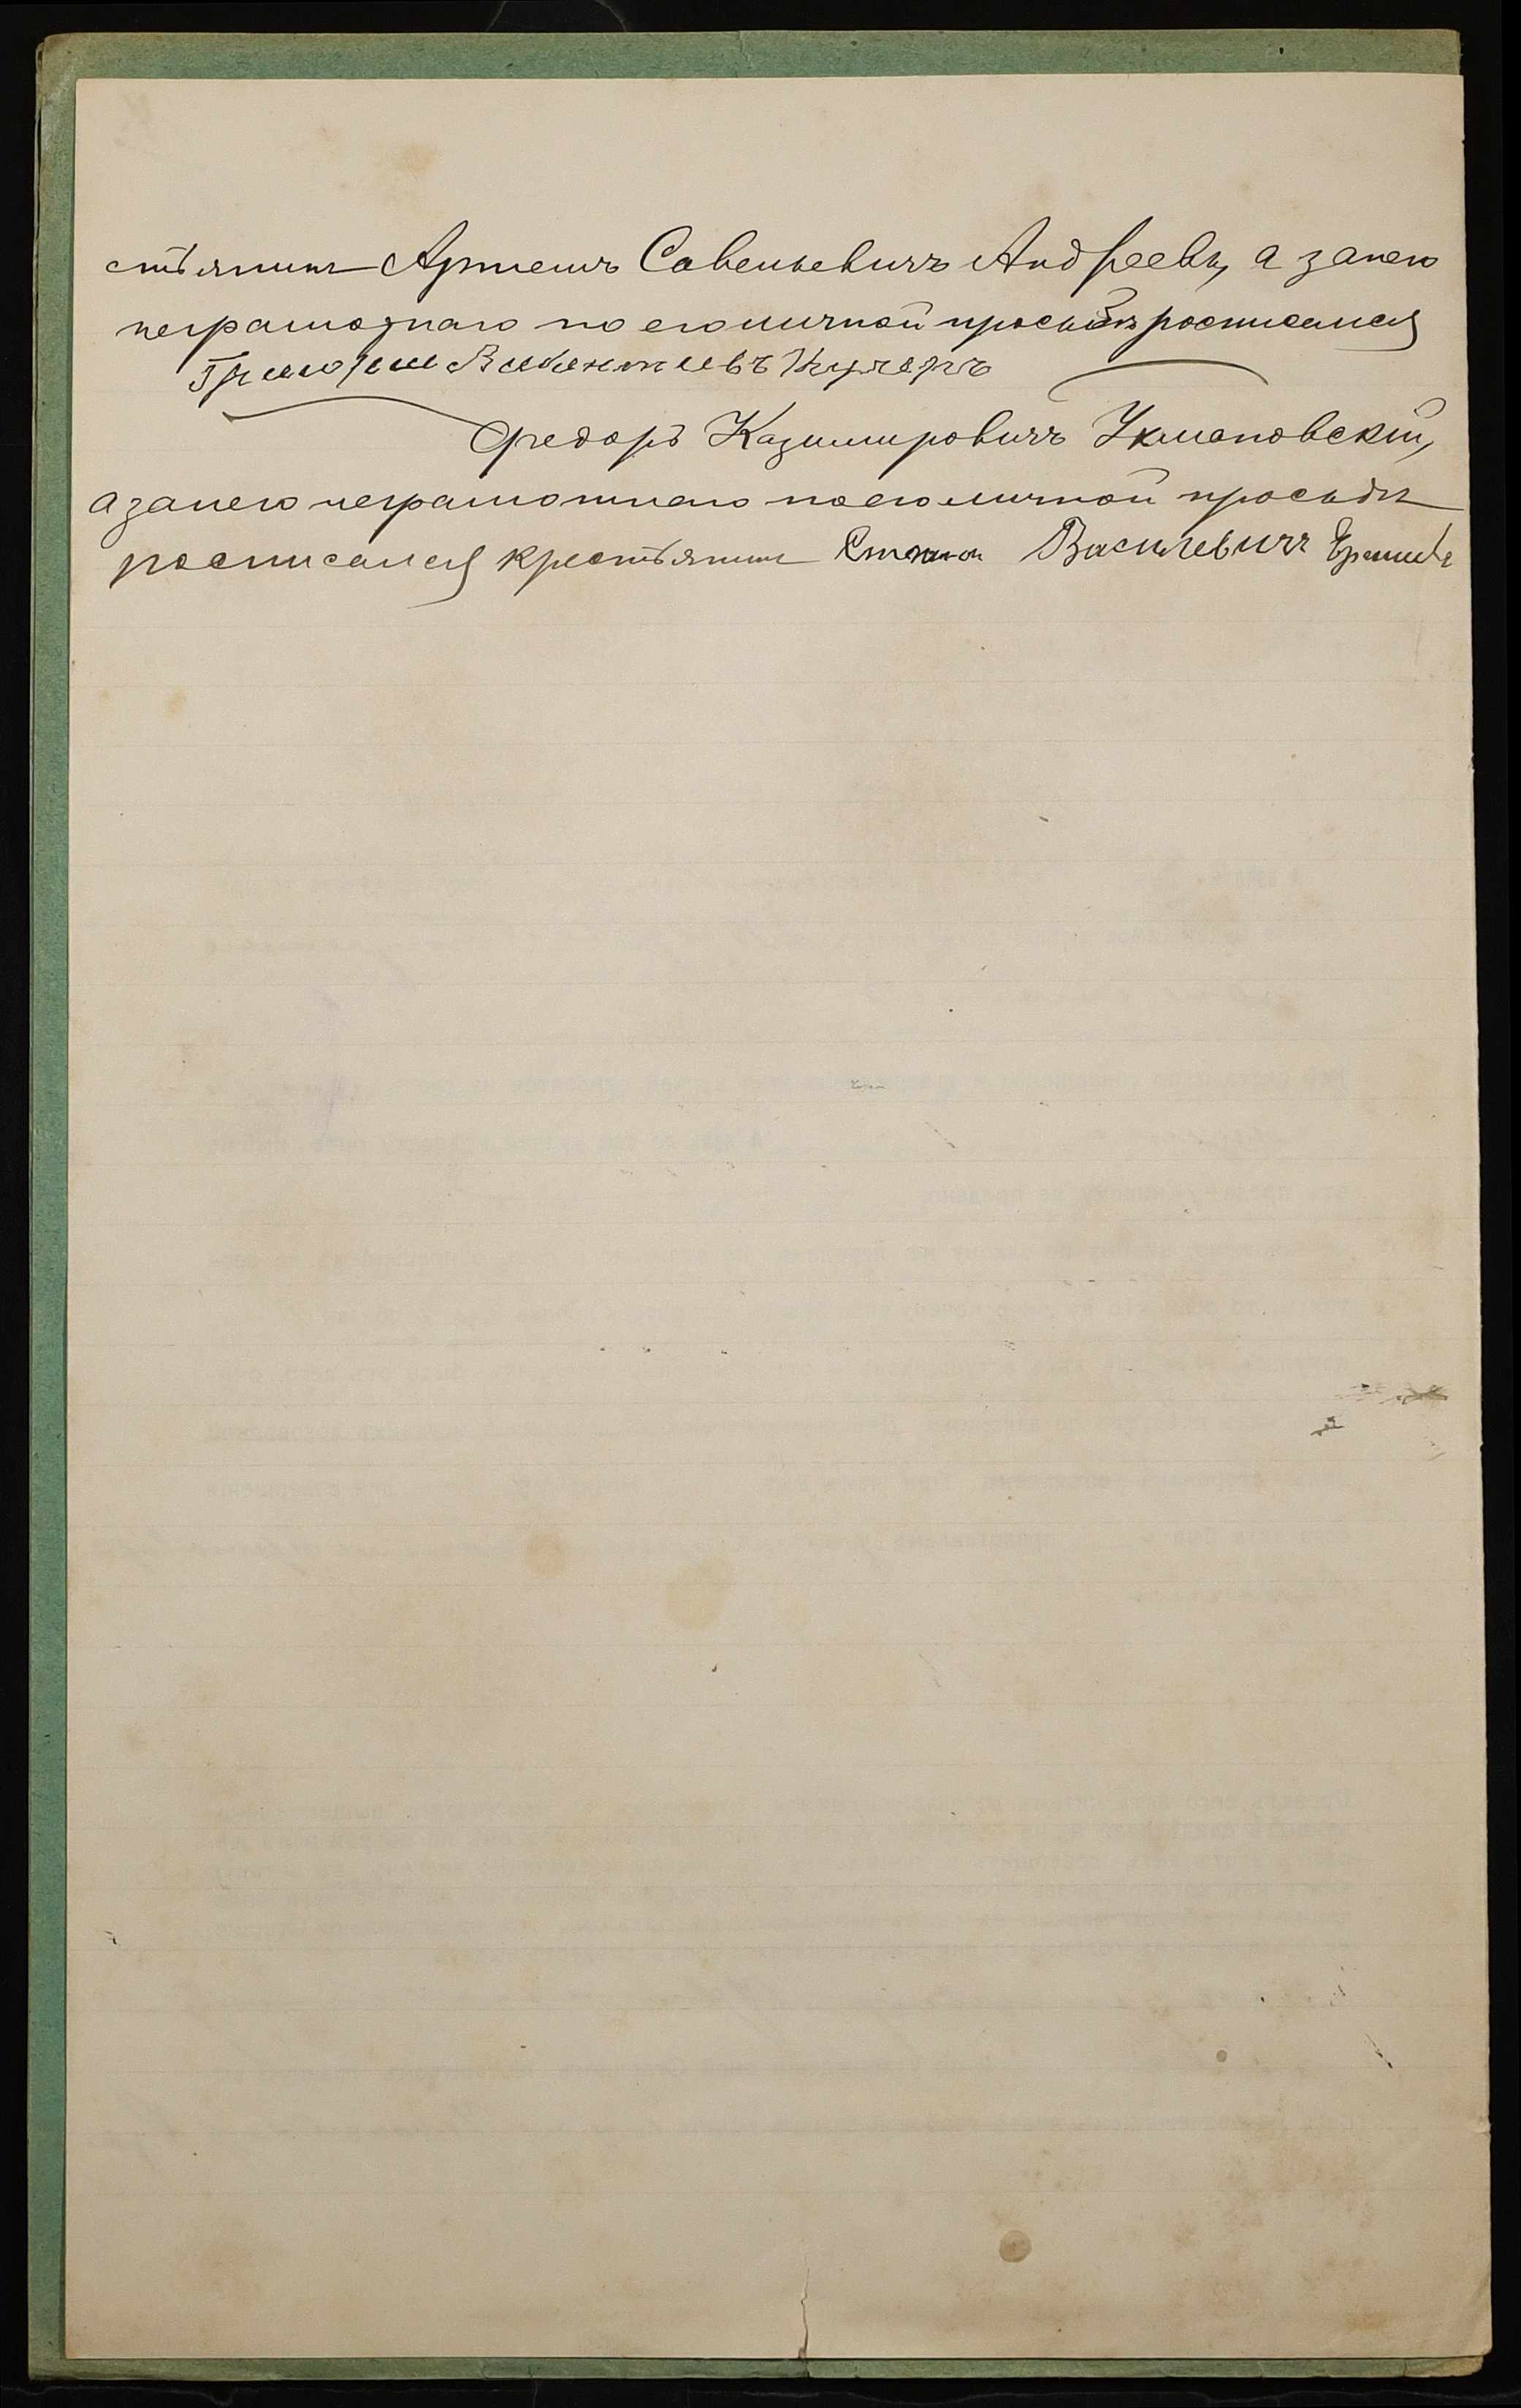 стьянинъ Артемъ Савельевичъ Андреевъ, а занего
неграмотнаго по еголичной просьбѣ росписался
Григорий Викентиевъ Кучеръ
Федоръ Казимировичъ Укмановскій,
а занего неграмотнаго поеголичной просьбѣ
росписался крестьянинъ Степан Василевичъ